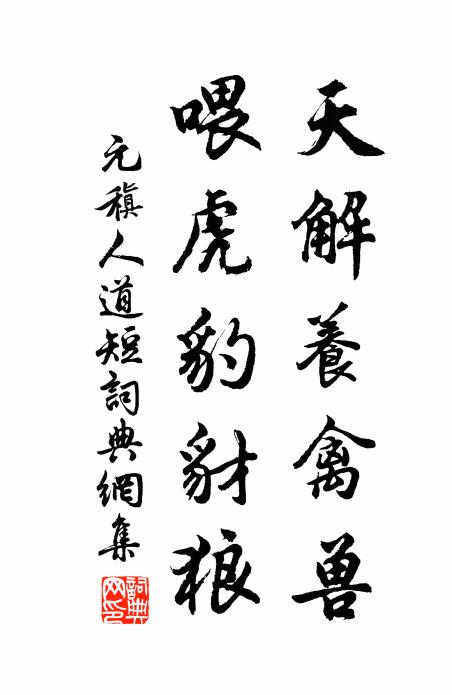 天解養禽兽
喂虎豹豺狼
元稹人道短詞典網集
詞典網印